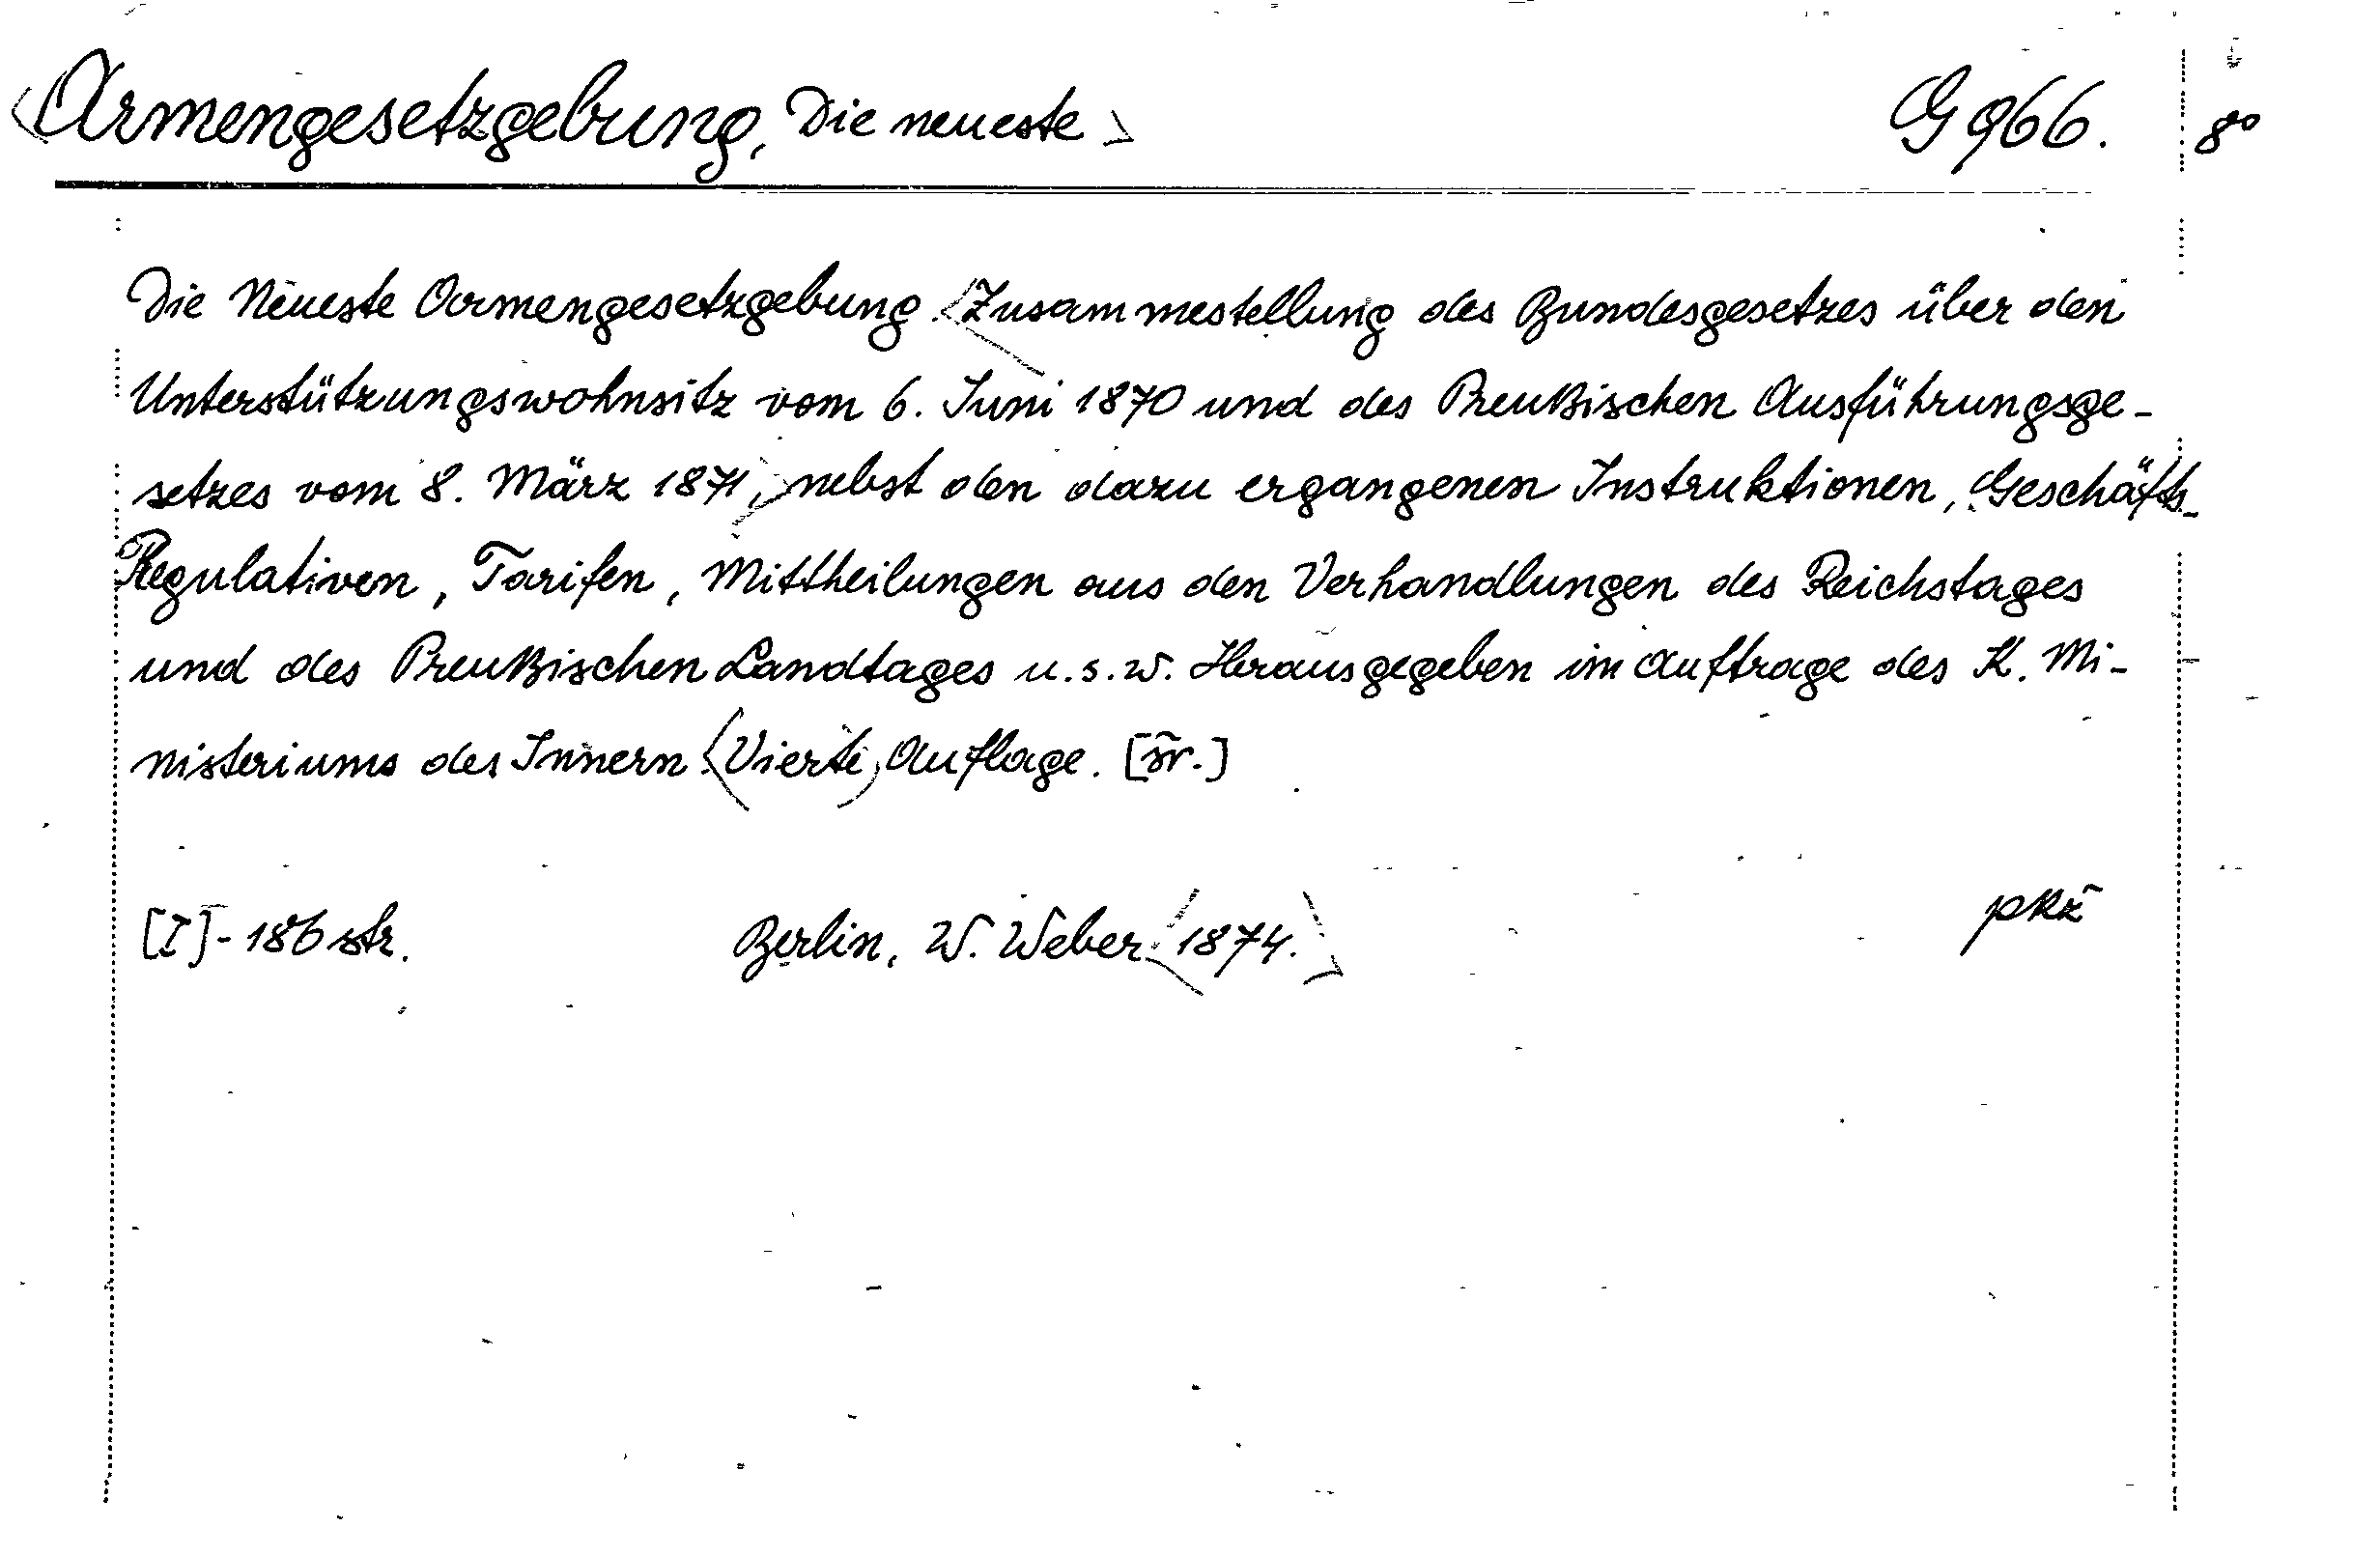 <Armengesetzgebung, Die neueste> G 966. 8°
Die Neueste Armengesetzgebung. <Zusammestellung des Bundesgesetzes über den
Unterstützungswohnsitz vom 6. Juni 1870 und des Preußischen Ausführungsge-
setzes vom 8. März 1871,> nebst den dazu ergangenen Instruktionen, Geschäfts-
Regulativen, Tarifen, Mittheilungen aus den Verhandlungen des Reichstages
und des Preußischen Landtages u.s.w. Herausgegeben im Auftrage des K. Mi-
nisteriums des Innern. <Vierte> Auflage. [šv.]
[I]-186 str. Berlin, W. Weber <1874.> pkž